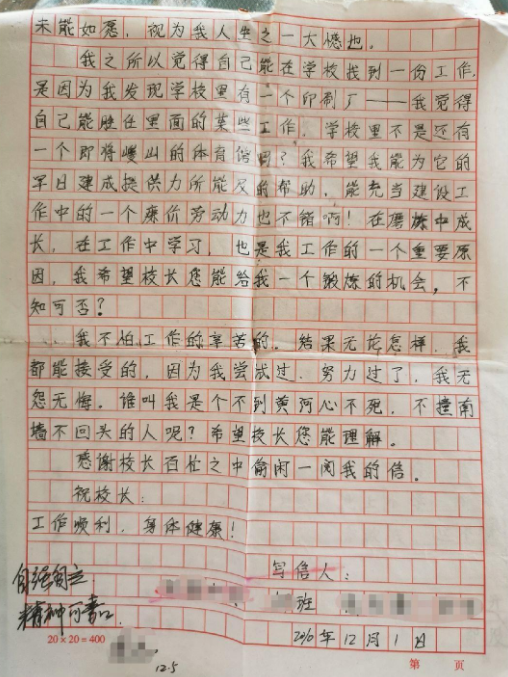 未能如愿，视为我人生之一大憾也。
我之所以觉得自己能在学校找到一份工作，
是因为我发现学校里有一个印刷厂——我觉得
自己能胜任里面的某些工作，学校里不是还有
一个即将竣工的体育馆吗？我希望我能为它的
早日建成提供力所能及的帮助，能充当建设工
作中的一个廉价劳动力也不错啊！在磨炼中成
长，在工作中学习，也是我工作的一个重要原
因，我希望校长您能给我一个锻炼的机会，不
知可否？
我不怕工作的辛苦的，结果无论怎样，我
都能接受的，因为我尝试过，努力过了，我无
怨无悔。谁叫我是个不到黄河心不死，不撞南
墙不回头的人呢？希望校长您能理解。
感谢校长百忙之中偷闲一阅我的信。
祝校长：
工作顺利，身体健康！
写信人：
班
2010年12月1日
自强自立
精神可书口
12.5
20×20=400
第 页